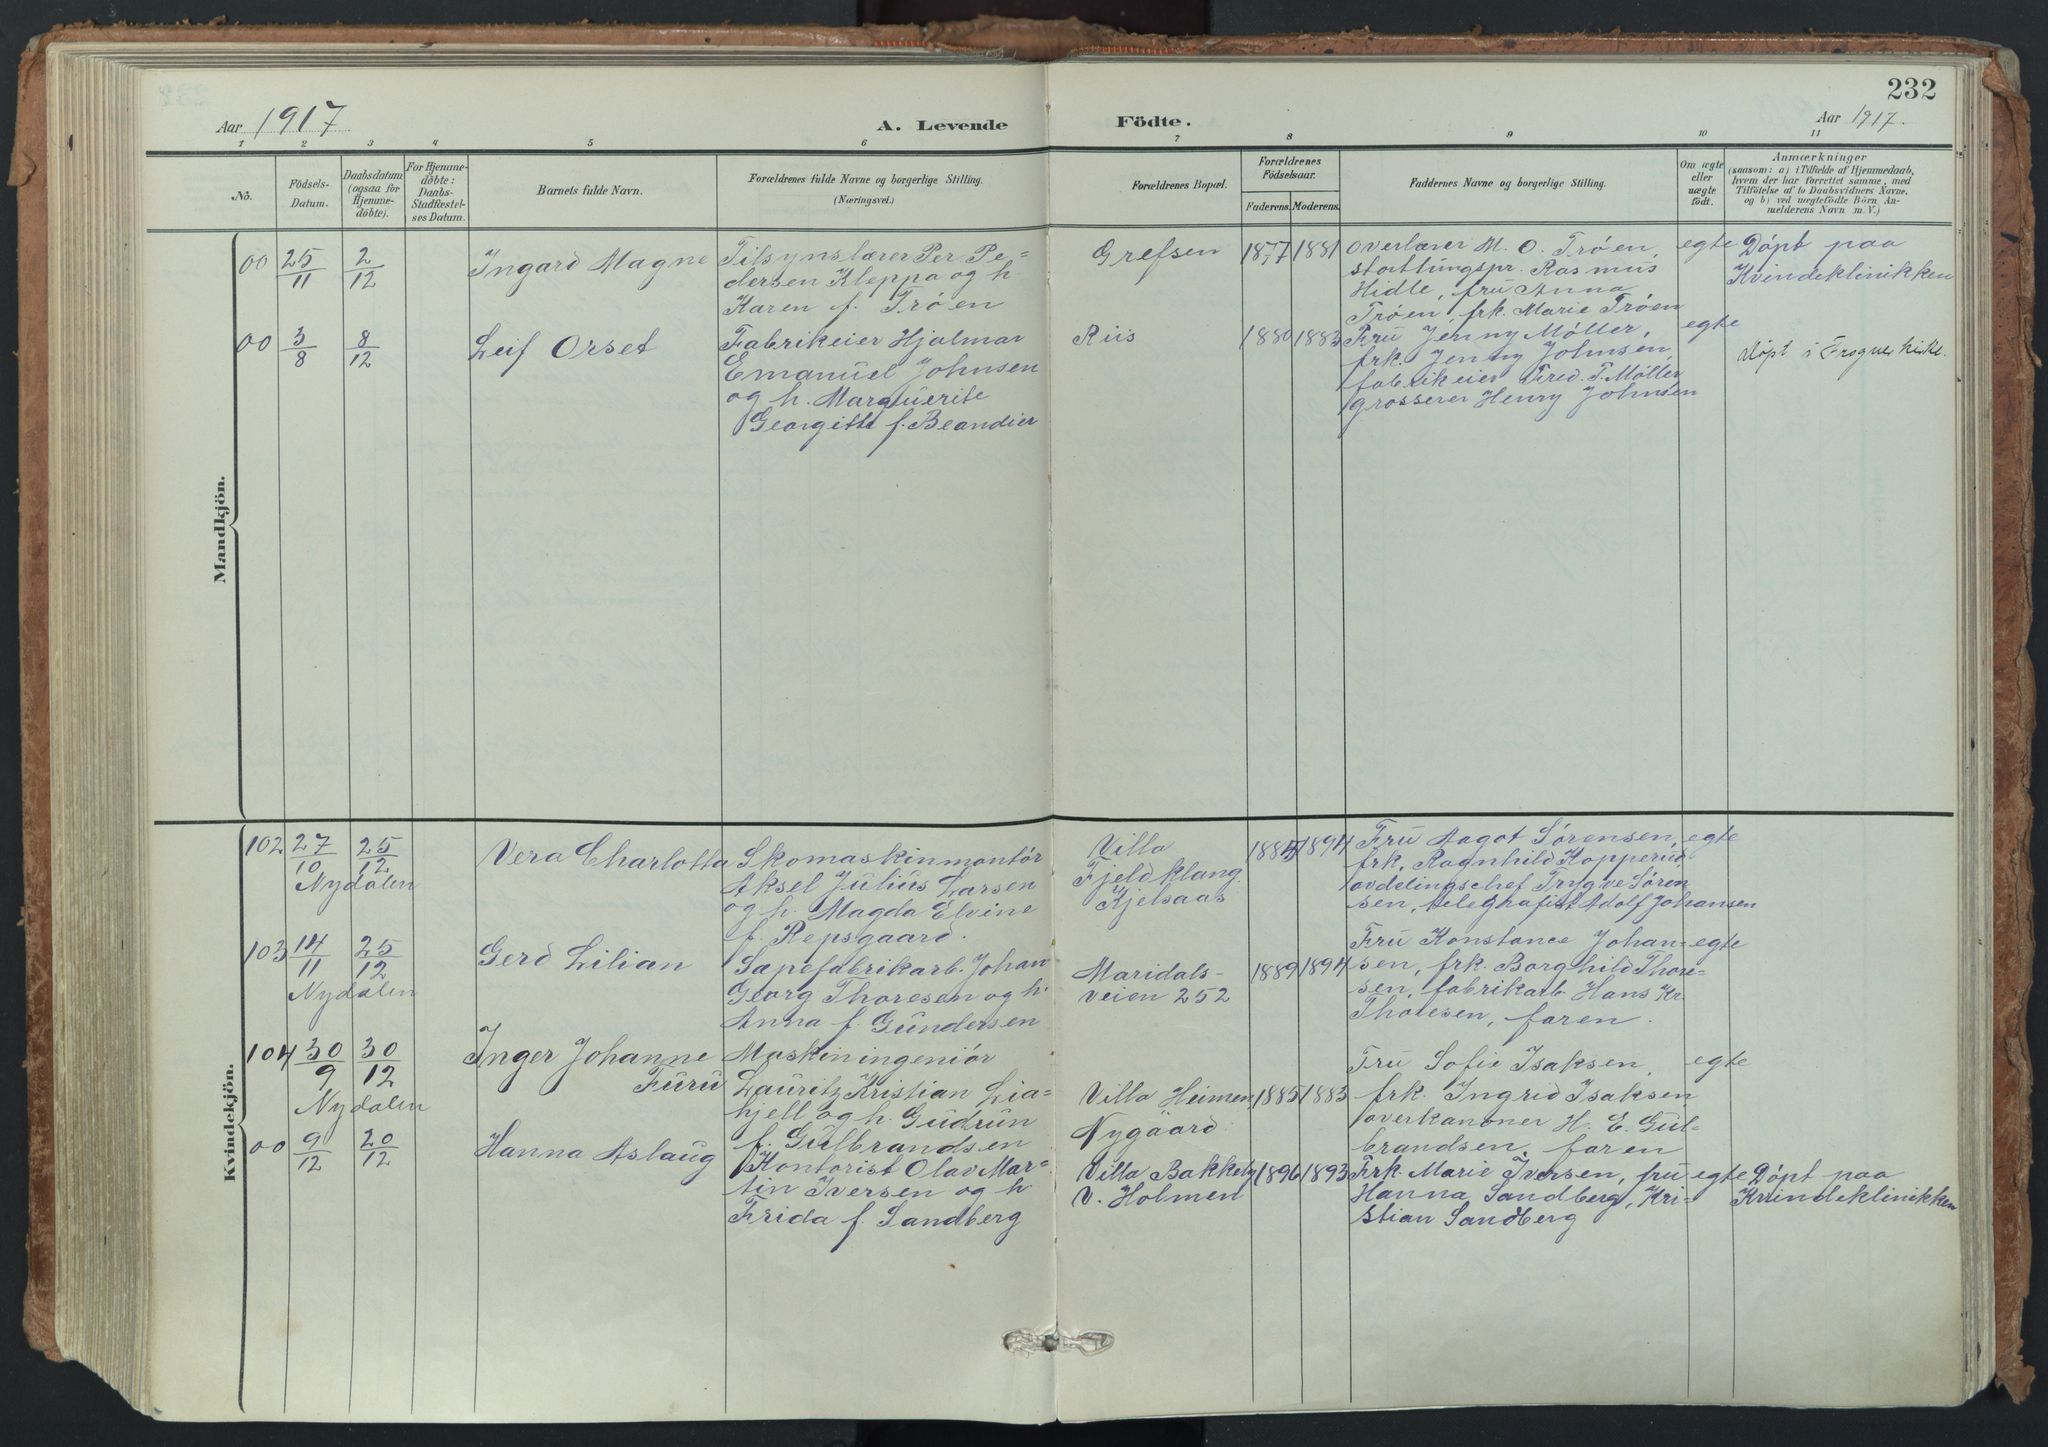 232
Aar 1917
A. Levende
Födte.
Aar 1917.
1 2 3 4 5 6 7 8 9 10 11
No.
Födsels-
Datum.
Daabsdatum
(ogsaa for
Hjemme-
döbte).
For Hjemme-
döbte:
Daabs-
Stadfæstel-
ses Datum.
Barnets fulde Navn.
Forældrenes fulde Navne og borgerlige Stilling.
(Næringsvei.)
Forældrenes Bopæl.
Forældrenes
Födselsaar.
Faderens. Moderens.
Faddernes Navne og borgerlige Stilling.
Om ægte
eller
uægte
födt.
Anmærkninger
(saasom: a) i Tilfælde af Hjemmedaab,
hvem der har forrettet samme, med
Tilföielse af to Daabsvidners Navne,
og b) ved uægtefödte Börn An-
melderens Navn m. V.)
Mandkjön.
00 25/11 2/12
Ingard Magne
Tilsynslærer Per Pe-
dersen Kleppa og h
Karen f. Trøen
Grefsen
1877 1881
Overlærer M. O. Trøen,
stortingspr. Rasmus
Hidle, fru Anna
Trøen, frk. Marie Trøen
egte
Døpt paa
Kvindeklinikken
00 3/8 8/12
Leif Orset
Fabrikeier Hjalmar
Emanuel Johnsen
og h. Marguerite
Georgitte f. Beandier
Riis
1880 1883
Fru Jenny Møller,
frk. Jenny Johnsen,
fabrikeier Fred. T. Møller
grosserer Henry Johnsen
egte
Døpt i Frogner kirke.
Kvindekjön.
102 27/10 25/12
Nydalen
Vera Charlotta
Skomaskinmontør
Aksel Julius Larsen
og h. Magda Elvine
f. Repsgaard.
Villa
Fjeldklang.
Kjelsaas
1894
Fru Aagot Sørensen,
frk. Ragnhild Kopperud
avdelingschef Trygve Søren
sen, telegrafist Adolf Johansen
egte
103 14/11 25/12
Nydalen
Gerd Lilian
Sæpefabrikarb. Johan
Georg Thoresen og h.
Anna f. Gundersen
Maridals-
veien 252
1889 1894
Fru Konstance Johan-
sen, frk. Borghild Thore-
sen, fabrikarb. Hans Kr.
Thoresen, faren.
egte
104 30/9 30/12
Nydalen
Inger Johanne
Furu
Maskiningeniør
Lauritz Kristian Lia-
hjell og h. Gudrun
f. Gulbrandsen
Villa Heimen
Nygaard
1885 1883
Fru Sofie Isaksen,
frk. Ingrid Isaksen
overkanoner H. E. Gul-
brandsen, faren
egte
00 9/12 20/12
Hanna Aslaug
Kontorist Olav Mar-
tin Iversen og h
Frida f. Sandberg
Villa Bakkely
v. Holmen
1896 1893
Frk. Marie Iversen, fru
Hanna Sandberg, Kri-
stian Sandberg
egte
Døpt paa
Kvindeklinikken